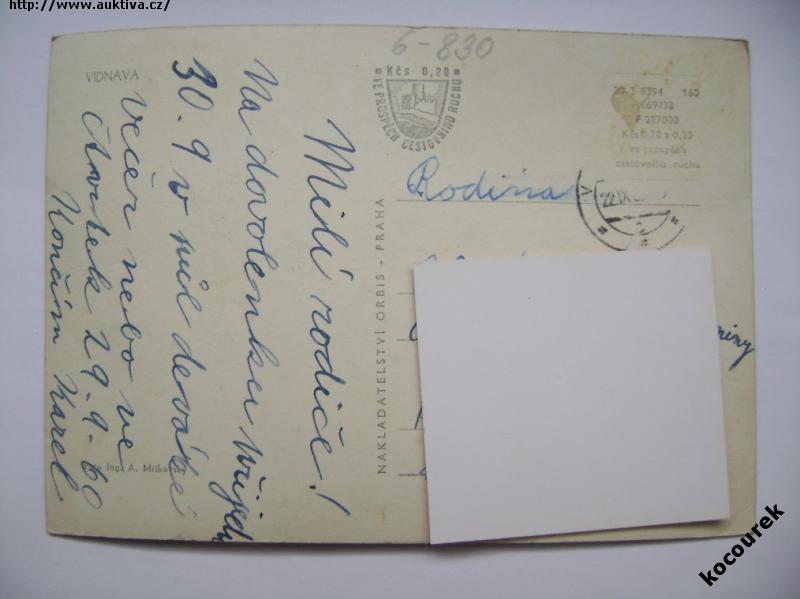 http://www.auktiva.cz/
6-830
Kčs 0,20
VE PROSPĚCH CESTOVNÍHO RUCHU
20 3 8394 160
069732
F 207008
Kčs 0,20 + 0,20
ve prospěch
cestovního ruchu
VIDNAVA
Milí rodiče!
Na dovolenku přijedu
30. 9 v půl deváté
večer nebo ve
čtvrtek 29. 9. 60
Končím Karel
Ing. A. Mitkovský
NAKLADATELSTVÍ ORBIS - PRAHA
Rodina
22.IX
kocourek